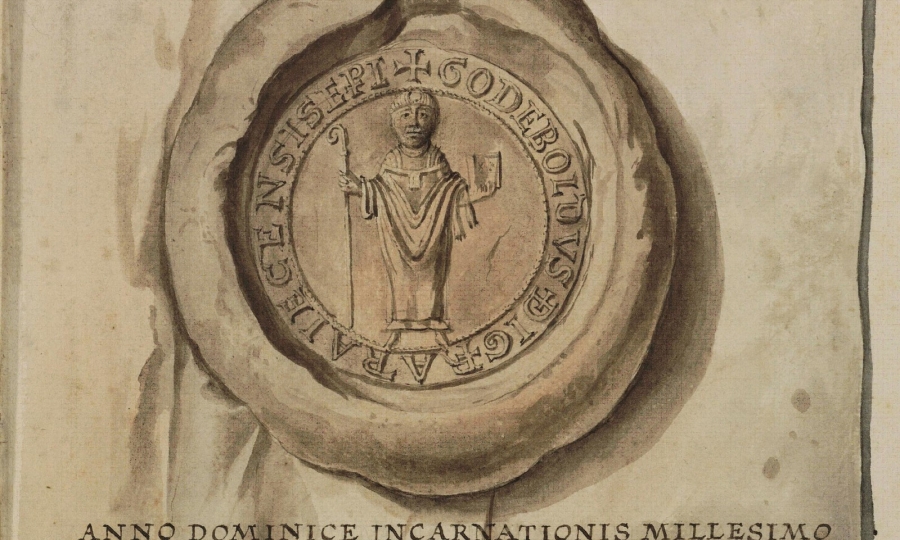 ✝ GODEBOLDVS DI GRA TRAIECENSIS EPI
ANNO DOMINICE INCARNATIONIS MILLESIMO